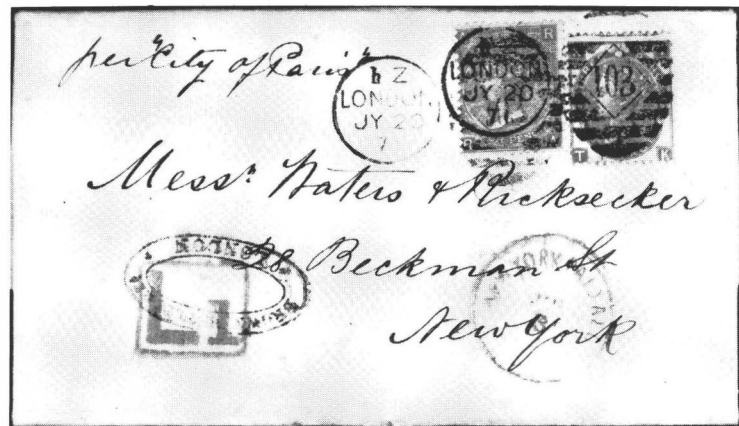 per "City of Paris"
h Z
LONDON
JY 20
7
LONDON
JY 20
71
103
R
T R
Messrs Waters & Ricksecker
28 Beekman St
New York
LONDON
L1
YORK